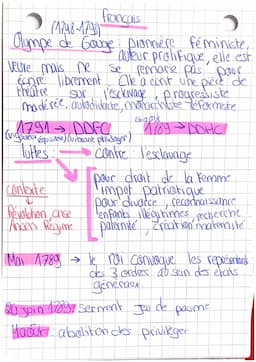 Français
(1748-1793)
Olympe de Gouge : pionnière féministe,
auteur prolifique, elle est
veuve mais ne se remarie pas pour
écrire librement. Elle a écrit une pièce de
théatre sur l'esclavage, progressiste
modérée, autodidacte, monarchiste réformiste
1791 → DDFC
1789 → DDHC
luttes : → contre l'esclavage
→ pour droit de la femme
impot patriotique
pour divorce, reconnaissance
enfants illégitimes, recherche
paternité, création maternité
contexte
Révolution, crise
Ancien Régime
Mai 1789 → le roi convoque les représentants
des 3 ordres au sein des états
généraux
20 juin 1789 serment Jeu de paume
4 août : abolition des privilèges